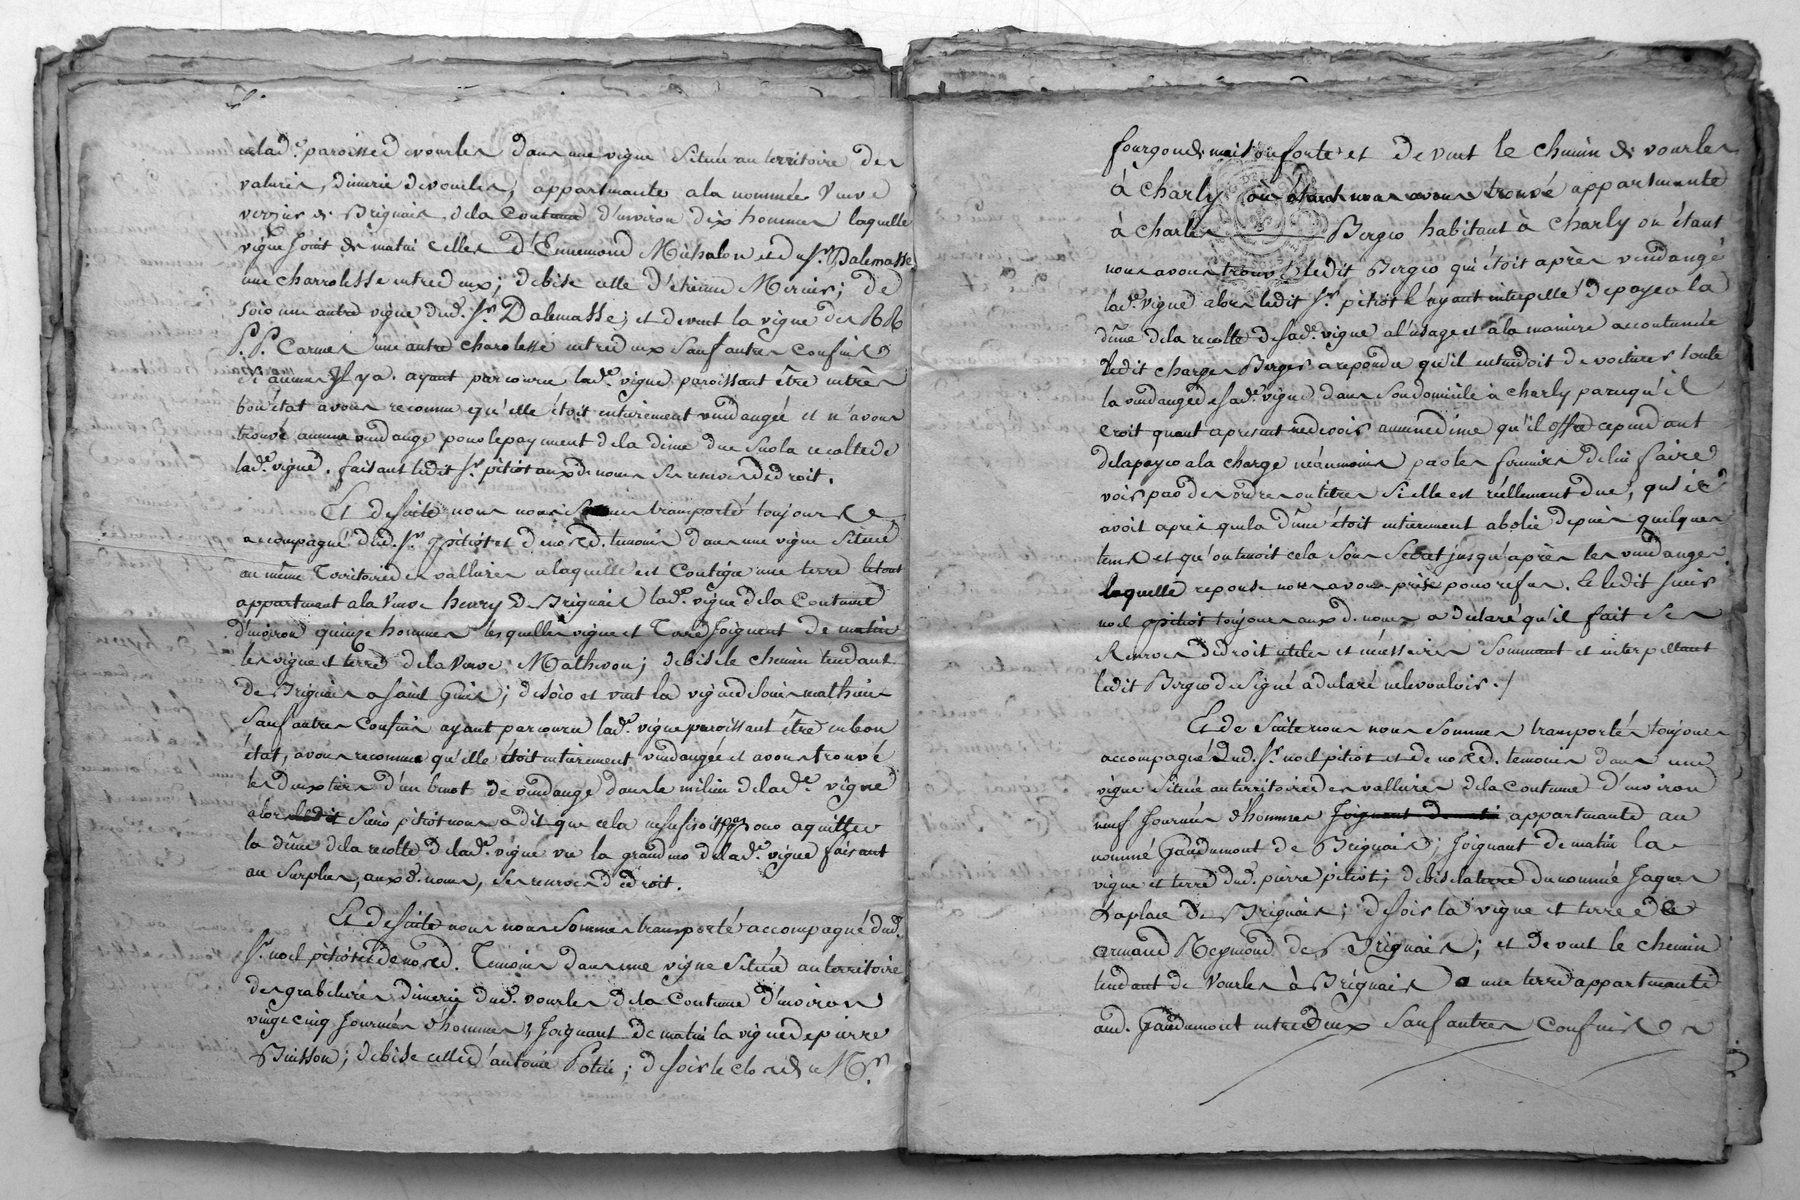 en lad.e paroisse de vourles dans une vigne Située au territoire des
valures, dimerie de vourles, appartenante a la nommée veuve
vernier de Brignais, de la Contenue d'environ dix hommes laquelle
vigne Joint de matin celles d'Ennemond Michalon et du Sr. Dalemasse
une charrolesse entre deux; de bise celle d'etienne Mernier; de
soir une autre vigne dud. Sr. Dalemasse; et de vent la vigne des RR
P.P. Carmes une autre charolesse entre deux Sauf autres Confins
Si aucuns Il y a. ayant parcouru lad.e vigne paroissant être en très
bon état avons reconnu qu'elle étoit entierement vendangée et n'avons
trouvé aucune vendange pour le payement de la dime due Sur la recolte de
lad.e vigne. faisant ledit Sr. pitiot aux d. noms Ses reserves de droit.
Et de Suite nous nous Sommes transporté toujours
accompagné dud. Sr. pitiot et de nos d. temoins dans une vigne Située
au même Territoire des vallures a laquelle est Contigue une terre le tout
appartenant a la Veuve henry de Brignais lad.e vigne de la Contenue
d'environ quinze hommes lesquelles vigne et Terre Joignent de matin
les vigne et terre de la Veuve Mathevon; de bise le chemin tendant
de Brignais a Saint Genis; de soir et vent la vigne de Souvé mathieu
Sauf autres Confins ayant parcouru lad.e vigne paroissant être en bon
état, avons reconnu qu'elle étoit entierement vendangée et avons trouvé
les deux tiers d'un benot de vendange dans le milieu de lad.e vigne
alors ledit Sieur pitiot nous a dit que cela ne suffisoit pas pour aquitter
la dîme de la recolte de lad.e vigne vu la grandeur de lad.e vigne faisant
au Surplus, aux d. noms, Ses reserves de droit.
Et de Suite nous nous Sommes transporté accompagné dud.
Sr. noel pitiot et de nos d. Temoins dans une vigne Située au territoire
des grabelières dimerie dud. vourles de la Contenue d'environ
vingt cinq Journées d'hommes, Joignant de matin la vigne de pierre
Buisson; de bise celle d'antoine Potin; de soir le clos de Mr.
fourgon de maison forte et de vent le chemin de vourles
à Charly où étant nous avons trouvé appartenante
à Charles Berger habitant à Charly où étant
nous avons trouvé ledit Berger qui étoit après vendangé
lad.e vigne alors ledit Sr. pitiot l'ayant interpellé de payer la
dîme de la recolte de sad.e vigne a l'usage et à la maniere accoutumée
ledit charge Berger a repondu qu'il entendoit de voiturer toute
la vendange de sad.e vigne dans Son domicile à Charly parcequ'il
croit quant apresent ne devoir aucune dime qu'il offre cependant
de la payer a la charge néanmoins par les fermiers de lui faire
voir par des ordres ou titres Si elle est réellement due, qu'il
avoit apris que la dîme étoit entierement abolie depuis quelques
tems et qu'on tenoit cela Sous Secret jusqu'après les vendanges
laquelle reponse nous avons prise pour refus. Et ledit Sieur
noel pitiot toujours aux d. noms a declaré qu'il fait Ses
Reserves de droit utiles et necessaires Sommant et interpellant
ledit Berger de Signé a declaré ne le vouloir./
Et de Suite nous nous Sommes transportés toujours
accompagné dud. Sr. noel pitiot et de nos d. temoins dans une
vigne Située au territoire des vallures de la Contenue d'environ
neuf Journées d'hommes Joignant de matin appartenante au
nommé Gaudumont de Brignais; Joignant de matin la
vigne et terre dud. pierre pitiot; de bise la terre du nommé Jaques
Laplace de Brignais; de soir la vigne et terre de
armand Reymond de Brignais; et de vent le chemin
tendant de Vourles à Brignais a une terre appartenante
aud. Gaudumont entre deux Sauf autres Confins